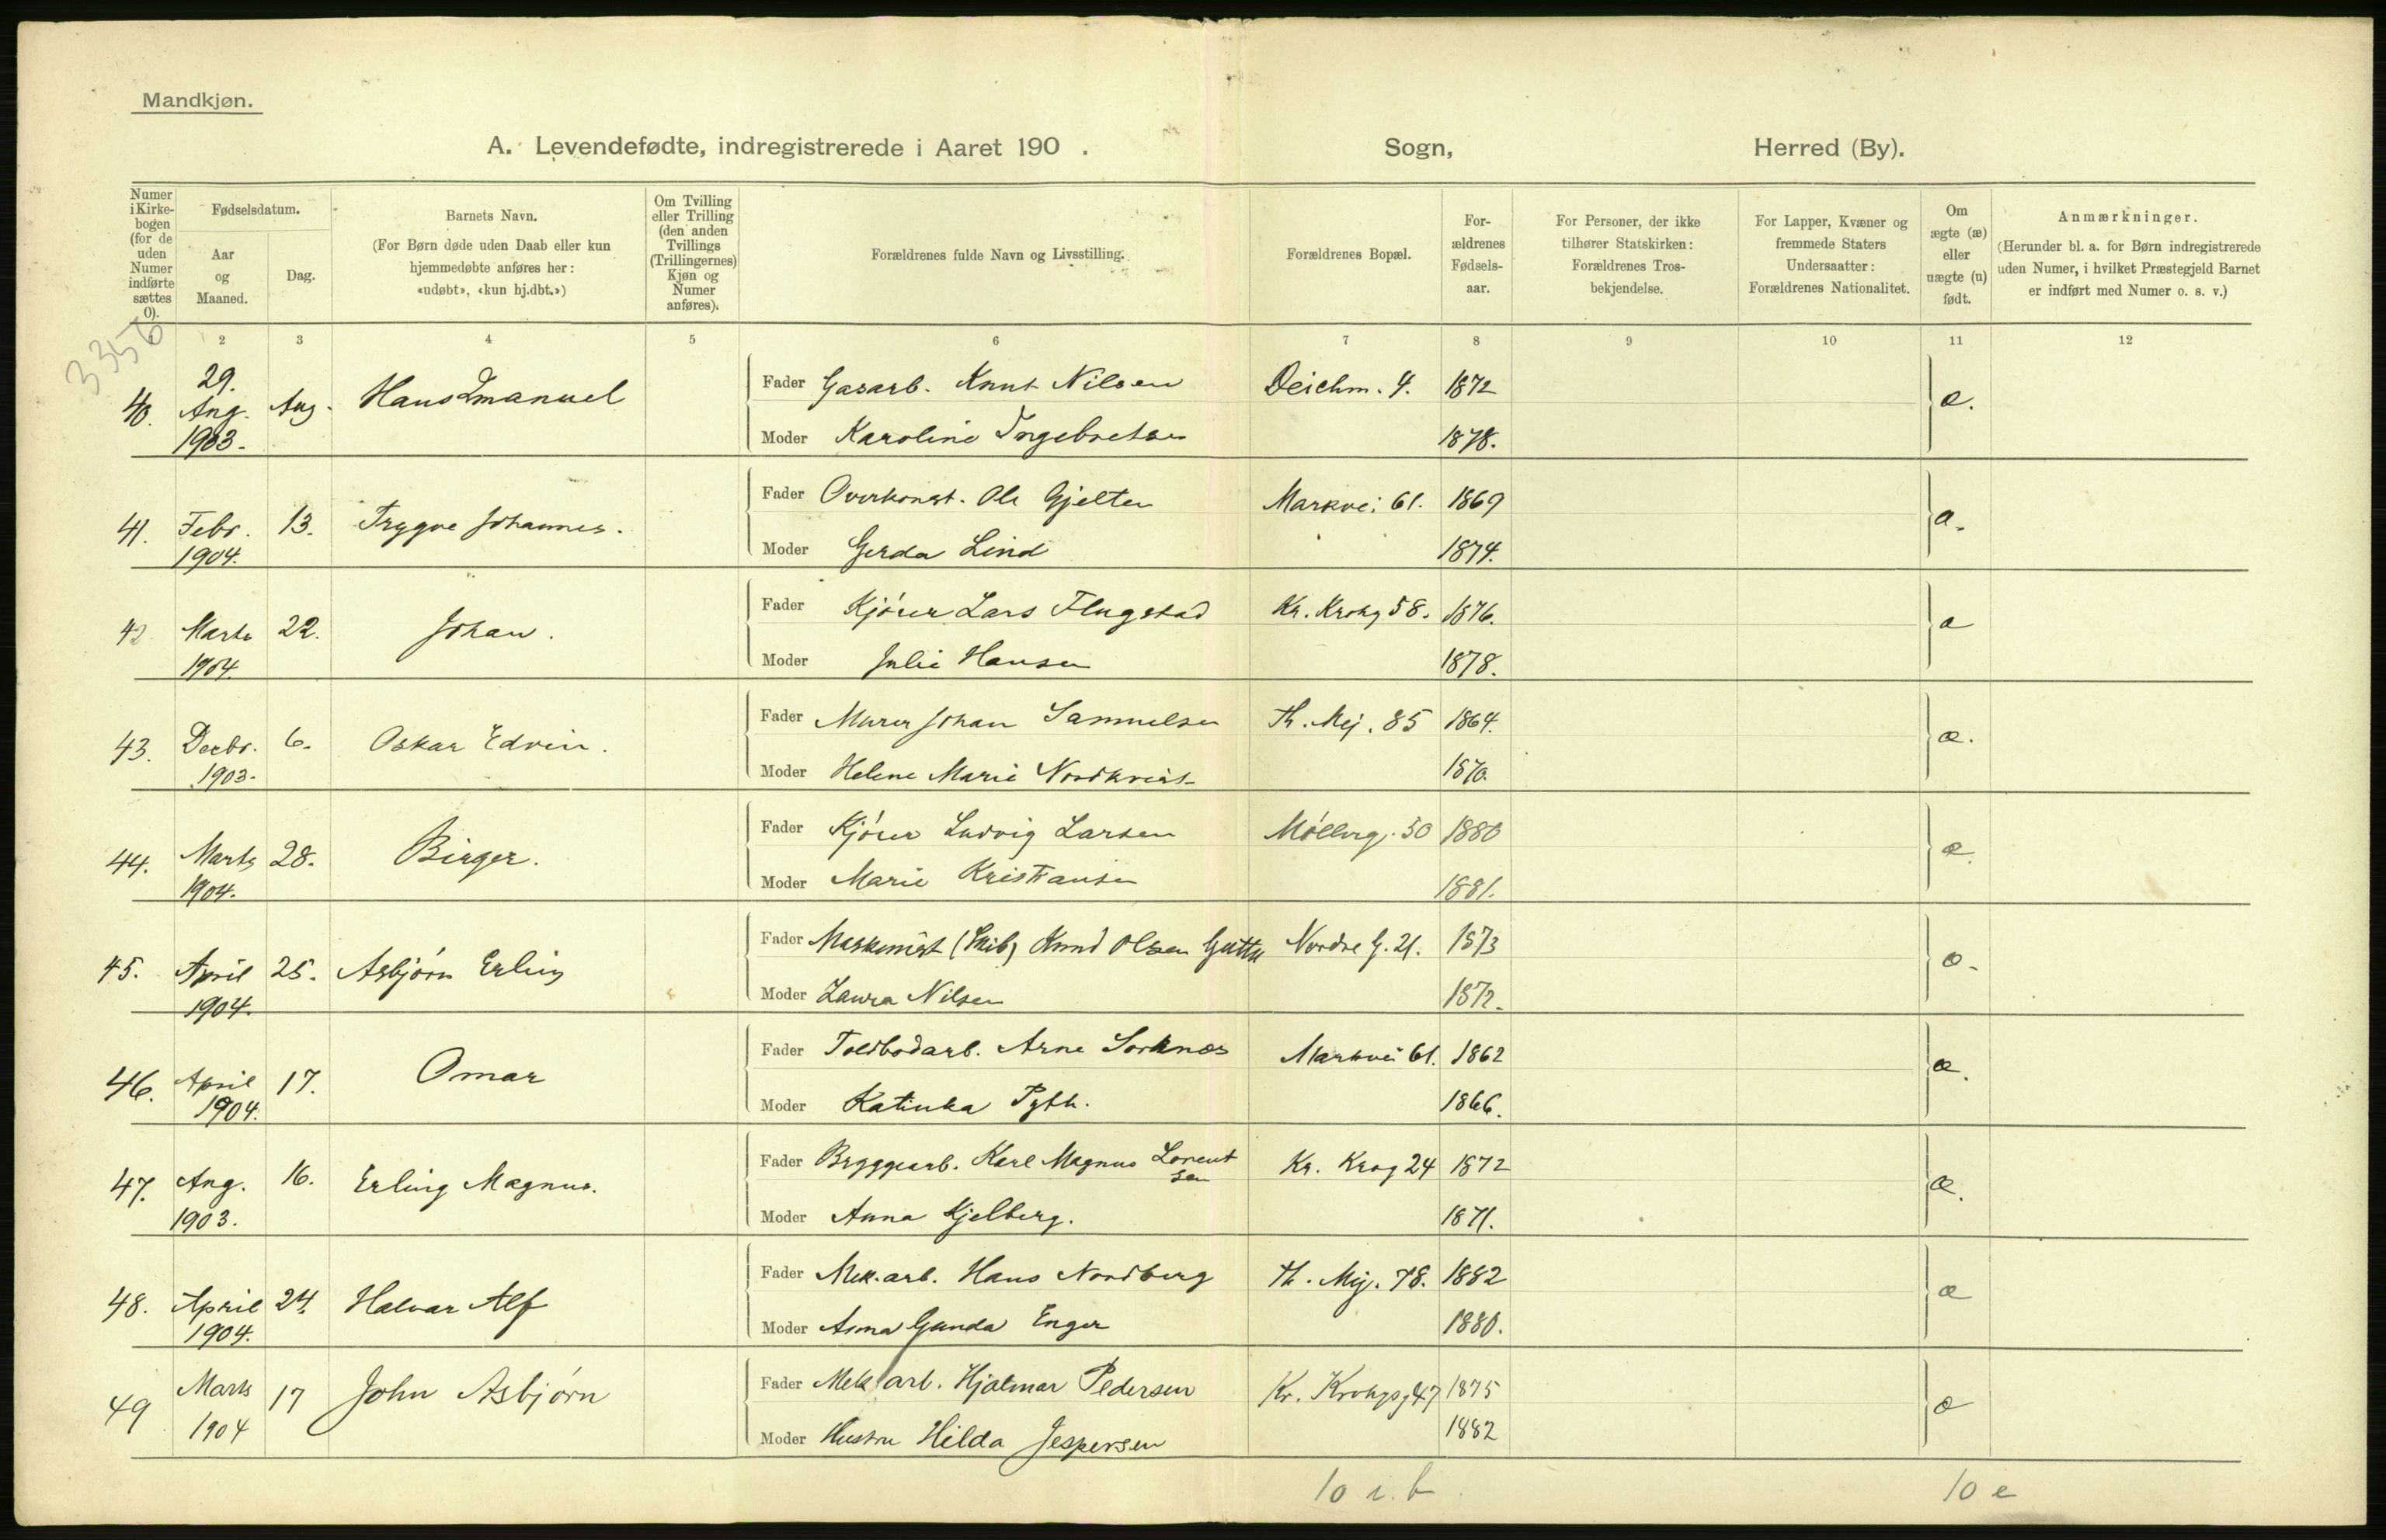 Mandkjøn.
A. Levendefødte, indregistrerede i Aaret 190 . Sogn, Herred (By).
Numer i Kirke-bogen (for de uden Numer indførte sættes 0).
Fødselsdatum.
Aar og Maaned.
Dag.
Barnets Navn.
(For Børn døde uden Daab eller kun hjemmedøbte anføres her: «udøbt», «kun hj.dbt.»)
Om Tvilling eller Trilling (den anden Tvillings (Trillingernes) Kjøn og Numer anføres).
Forældrenes fulde Navn og Livsstilling.
Forældrenes Bopæl.
For-ældrenes Fødsels-aar.
For Personer, der ikke tilhører Statskirken: Forældrenes Tros-bekjendelse.
For Lapper, Kvæner og fremmede Staters Undersaatter: Forældrenes Nationalitet.
Om ægte (æ) eller uægte (u) født.
Anmærkninger.
(Herunder bl. a. for Børn indregistrerede uden Numer, i hvilket Præstegjeld Barnet er indført med Numer o. s. v.)
3356
2 3 4 5 6 7 8 9 10 11 12
40. 29. Aug. 1903. Aug. Hans Imanuel Fader Gasarb. Knut Nilsen Deichm. 4. 1872 æ.
Moder Karoline Ingebretsen 1878.
41. Febr. 1904. 13. Trygve Johannes. Fader Overkonst. Ole Gjelten Markvei 61. 1869 æ.
Moder Gerda Lind 1874.
42 Marts 1904. 22. Johan. Fader Kjører Lars Flugstad Kr. Krohg 58. 1876. æ
Moder Julie Hansen 1878.
43. Decbr. 1903. 6. Oskar Edvin. Fader Murer Johan Samuelsen Th. Mej. 85 1864. æ.
Moder Helene Marie Nordkvist 1870.
44. Marts 1904. 28. Birger. Fader Kjører Ludvig Larsen Møllerg. 50 1880 æ.
Moder Marie Kristiansen 1881.
45. April 1904. 25. Asbjørn Erling Fader Maskinist (Skib) Knud Olsen Nordre G. 21. 1873 æ.
Moder Laura Nilsen 1872.
46. April 1904. 17. Omar Fader Toldbodarb. Arne Sorknæs Markvei 61. 1862 æ.
Moder Katinka Pyth. 1866.
47. Aug. 1903. 16. Erling Magnus. Fader Bryggearb. Karl Magnus Lorentsen Kr. Krog 24 1872 æ.
Moder Anna Kjelberg. 1871.
48. April 1904. 24. Halvar Alf Fader Mek. arb. Hans Nordberg Th. Mej. 78. 1882 æ
Moder Anna Gunda Enger 1880.
49 Marts 1904 17 John Asbjørn Fader Mek arb. Hjalmar Pedersen Kr. Krohgsg 47 1875 æ
Moder Hustru Hilda Jespersen 1882
10 i. b. 10 e